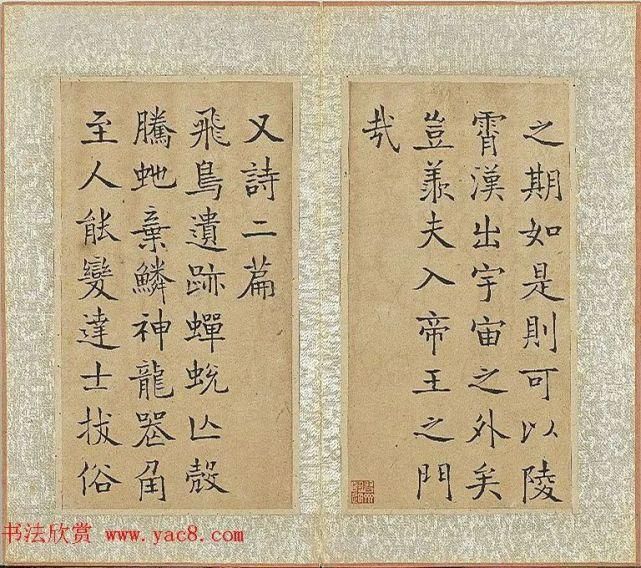 之期如是則可以陵
霄漢出宇宙之外矣
豈羨夫入帝王之門
哉
又詩二篇
飛鳥遺跡蟬蛻亾殼
騰虵棄鱗神龍喪角
至人能變達士拔俗
书法欣赏 www.yac8.com